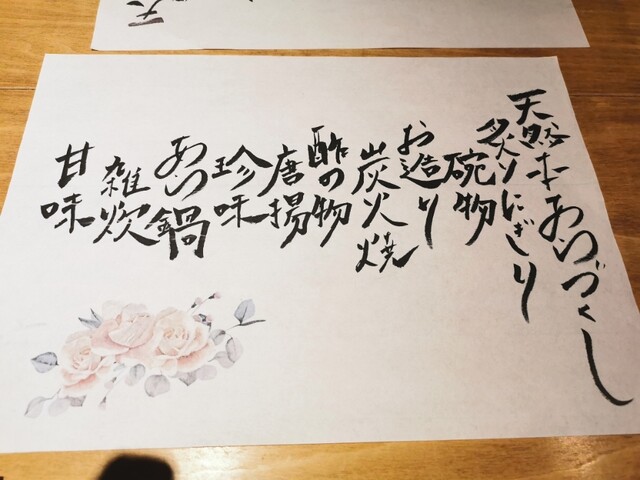 天然本あらづくし
炙りにぎり
碗物
お造り
炭火焼
酢の物
唐揚
珍味
あら鍋
雑炊
甘味